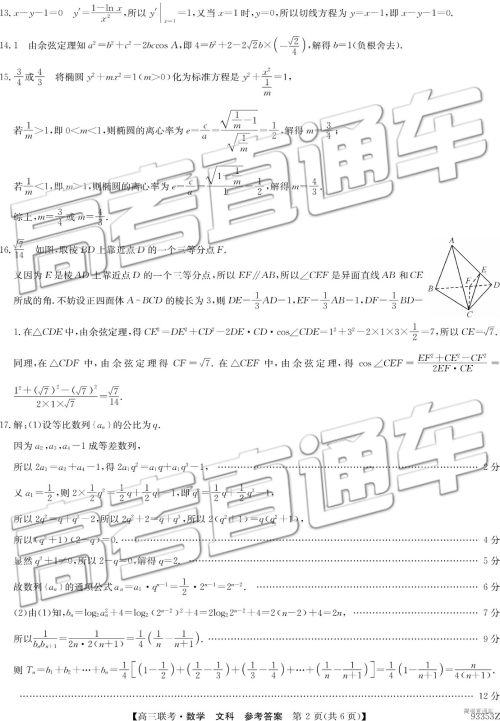 13. x－y－1=0　y′=(1－ln x)/x²,所以 y′|ₓ₌₁=1,又当 x=1 时,y=0,所以切线方程为 y=x－1,即 x－y－1=0.
14. 1　由余弦定理知 a²=b²+c²－2bccos A,即 4=b²+2－2√2b×(－√2/4),解得 b=1(负根舍去).
15. 3/4 或 4/3　将椭圆 y²+mx²=1(m>0)化为标准方程是 y²+x²/(1/m)=1,
若 1/m>1,即 0<m<1,则椭圆的离心率为 e=c/a=√(1/m－1)/√(1/m)=1/2,解得 m=3/4;
若 1/m<1,即 m>1,则椭圆的离心率为 e=c/a=√(1－1/m)=1/2,解得 m=4/3.
综上,m=3/4 或 m=4/3.
16. √7/14　如图,取棱 BD 上靠近点 D 的一个三等分点 F.
又因为 E 是棱 AD 上靠近点 D 的一个三等分点,所以 EF∥AB,所以∠CEF 是异面直线 AB 和 CE
所成的角.不妨设正四面体 A－BCD 的棱长为 3,则 DE=1/3AD=1,EF=1/3AB=1,DF=1/3BD=
1.在△CDE 中,由余弦定理,得 CE²=DE²+CD²－2DE·CD·cos∠CDE=1²+3²－2×1×3×1/2=7,所以 CE=√7.
同理,在△CDF 中,由余弦定理得 CF=√7.在△CEF 中,由余弦定理,得 cos∠CEF=(EF²+CE²－CF²)/(2EF·CE)=
(1²+(√7)²－(√7)²)/(2×1×√7)=√7/14.
A
E
F
B
D
C
17. 解:(1)设等比数列{aₙ}的公比为 q.
因为 a₂,a₃,a₄－1 成等差数列,
所以 2a₃=a₂+a₄－1,得 2a₁q²=a₁q+a₁q³－1, …… 2 分
又 a₁=1/2,则 2×1/2q²=1/2q+1/2q³－1,即 q²=1/2q+1/2q³－1,
所以 2q²=q+q³－2,所以 2q²+2=q+q³,所以 2(q²+1)=q(q²+1),
所以(q²+1)(2－q)=0. …… 4 分
显然 q²+1≠0,所以 2－q=0,解得 q=2. …… 5 分
故数列{aₙ}的通项公式 aₙ=a₁·qⁿ⁻¹=1/2·2ⁿ⁻¹=2ⁿ⁻². …… 6 分
(2)由(1)知,bₙ=log₂aₙ²+4=log₂(2ⁿ⁻²)²+4=2log₂2ⁿ⁻²+4=2(n－2)+4=2n, …… 7 分
所以 1/(bₙbₙ₊₁)=1/(2n·2(n+1))=1/4(1/n－1/(n+1)). …… 9 分
则 Tₙ=b₁+b₂+…+bₙ=1/4[(1－1/2)+(1/2－1/3)+(1/3－1/4)+…+(1/n－1/(n+1))]=1/4(1－1/(n+1))=n/(4(n+1)).
…… 12 分
【高三联考·数学　文科　参考答案　第 2 页(共 6 页)】
高考直通车
高考直通车